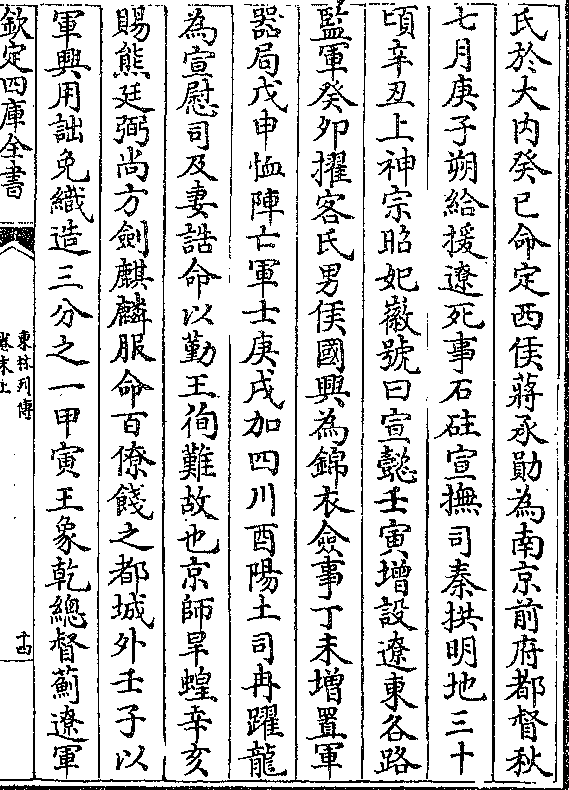 氏於大内癸巳命定西侯蔣承勛為南京前府都督秋
七月庚子朔給援遼死事石砫宣撫司秦拱明地三十
頃辛丑上神宗昭妃徽號曰宣懿壬寅增設遼東各路
監軍癸卯擢客氏男侯國興為錦衣僉事丁未增置軍
器局戊申恤陣亡軍士庚戌加四川酉陽土司冉躍龍
為宣慰司及妻誥命以勤王徇難故也京師旱蝗辛亥
賜熊廷弼尚方劍麒麟服命百僚餞之都城外壬子以
軍興用詘免織造三分之一甲寅王象乾總督薊遼軍
欽定四庫全書
東林列傳
卷末上
十四